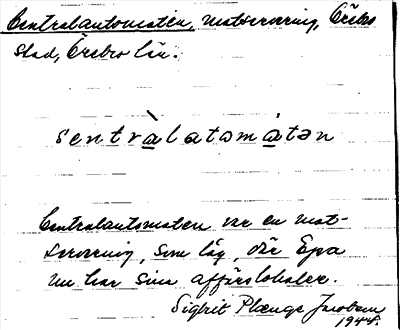 Centralautomaten, matservering, Örebro
stad, Örebro län.
sentràlatəmátən
Centralautomaten var en mat-
servering, som låg, där Epa
nu har sina affärslokaler.
Sigbrit Plænge Jacobson
1944.